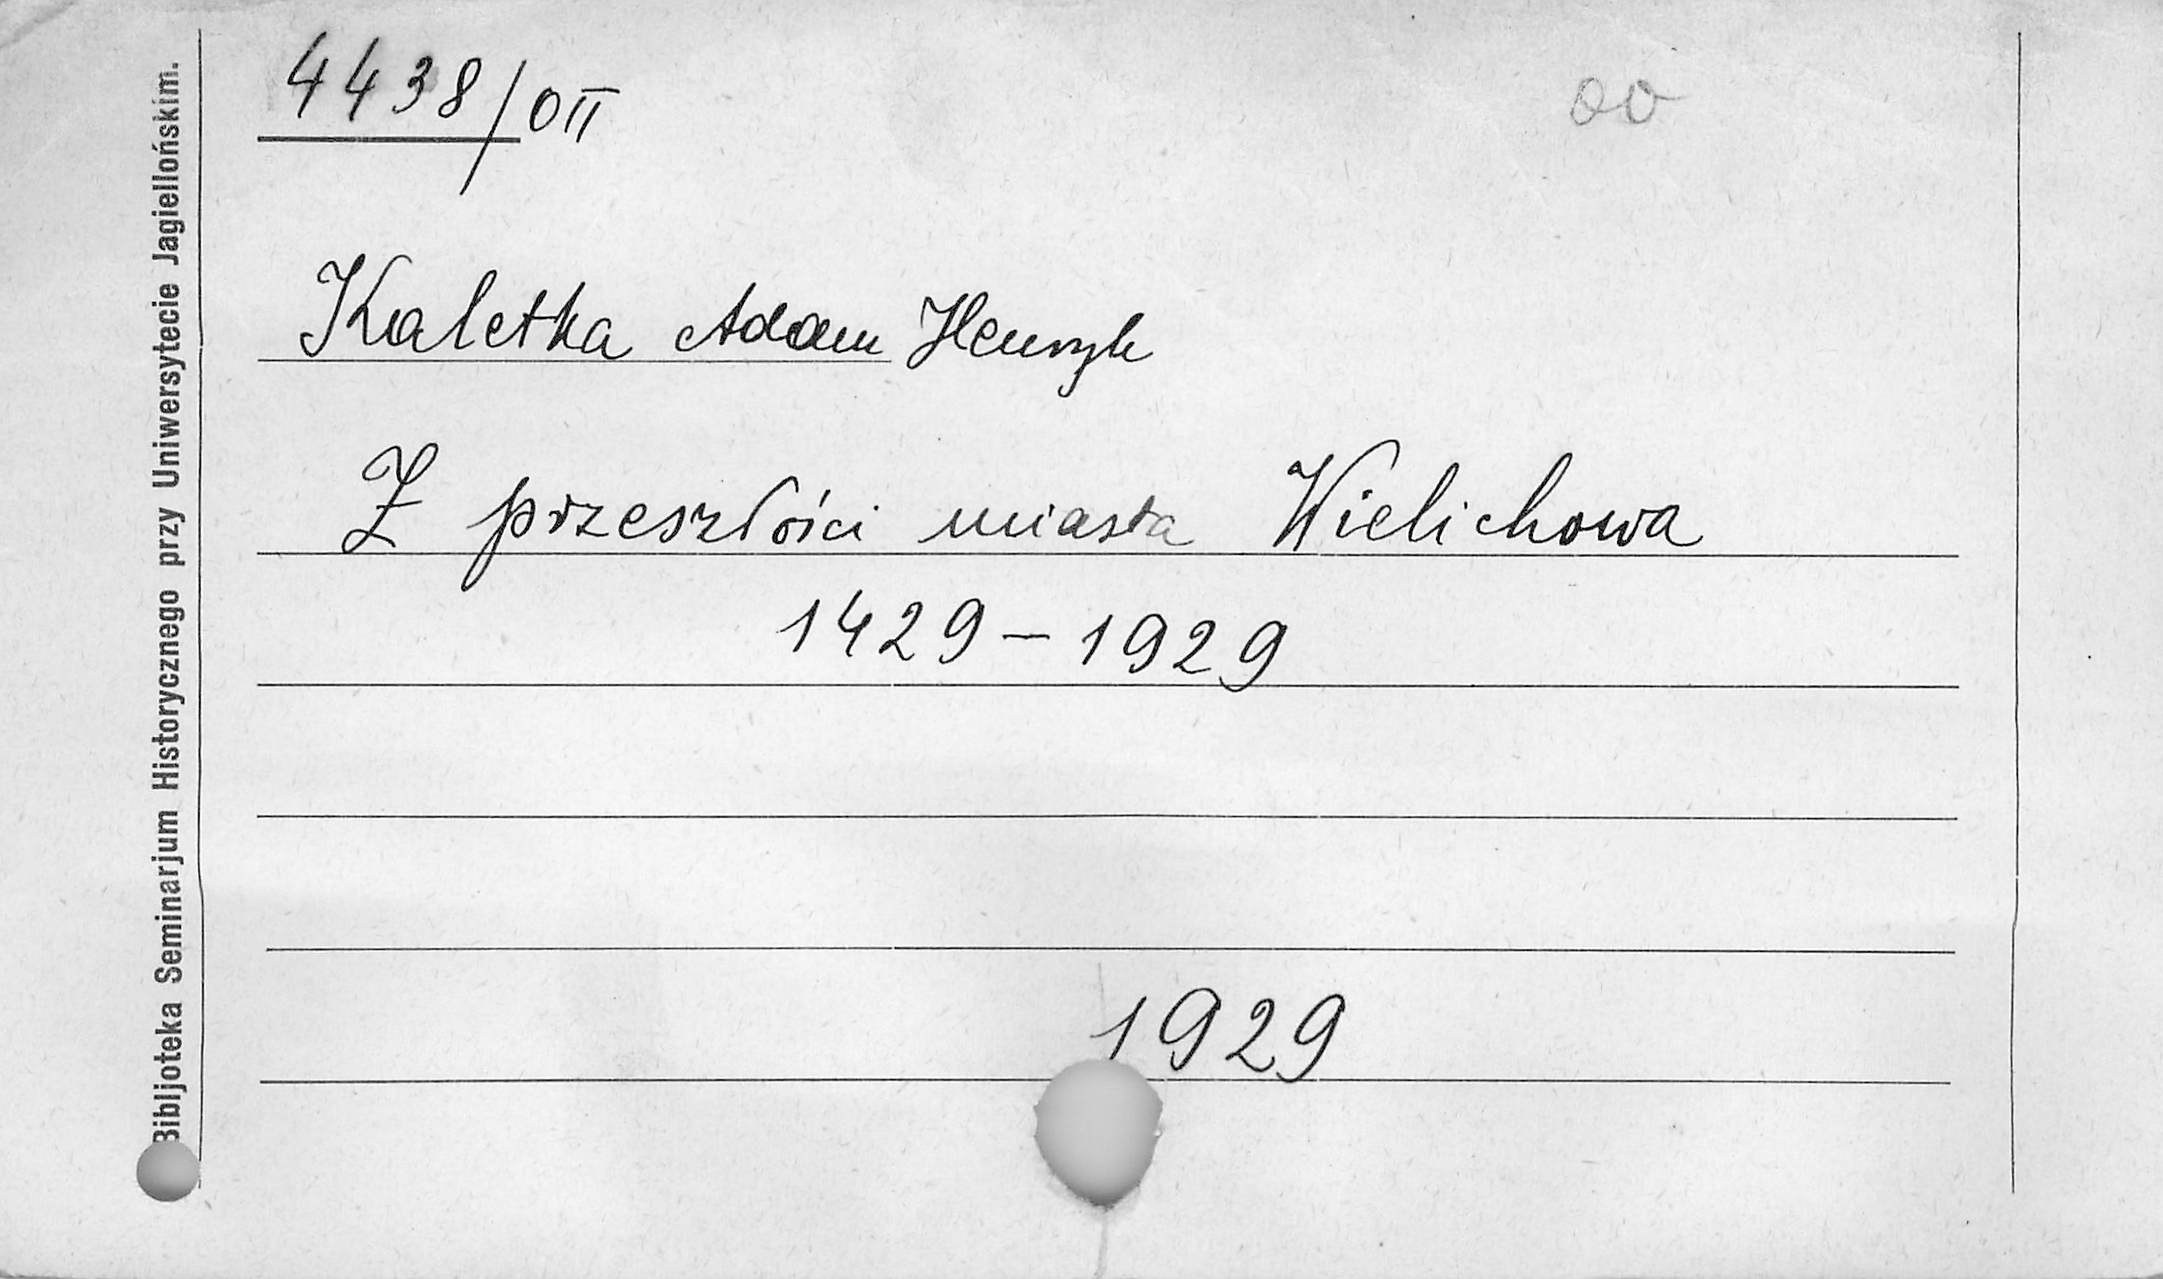 4438/OII
oo
Kaletka Adam Henryk
Z przeszłości miasta Wielichowa
1429-1929
1929
Bibljoteka Seminarjum Historycznego przy Uniwersytecie Jagiellońskim.